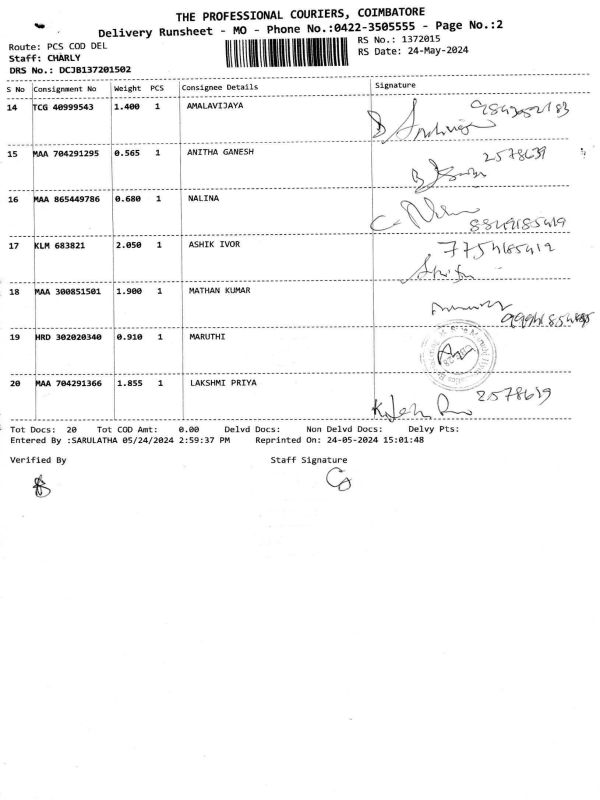 THE PROFESSIONAL COURIERS, COIMBATORE
Delivery Runsheet - MO - Phone No.:0422-3505555 - Page No.:2
Route: PCS COD DEL
RS No.: 1372015
Staff: CHARLY
RS Date: 24-May-2024
DRS No.: DCJB137201502
S No Consignment No Weight PCS Consignee Details Signature
14 TCG 40999543 1.400 1 AMALAVIJAYA
15 MAA 704291295 0.565 1 ANITHA GANESH 2578639
16 MAA 865449786 0.680 1 NALINA
17 KLM 683821 2.050 1 ASHIK IVOR
18 MAA 300851501 1.900 1 MATHAN KUMAR
19 HRD 302020340 0.910 1 MARUTHI
20 MAA 704291366 1.855 1 LAKSHMI PRIYA 2578619
Tot Docs: 20 Tot COD Amt: 0.00 Delvd Docs: Non Delvd Docs: Delvy Pts:
Entered By :SARULATHA 05/24/2024 2:59:37 PM Reprinted On: 24-05-2024 15:01:48
Verified By Staff Signature